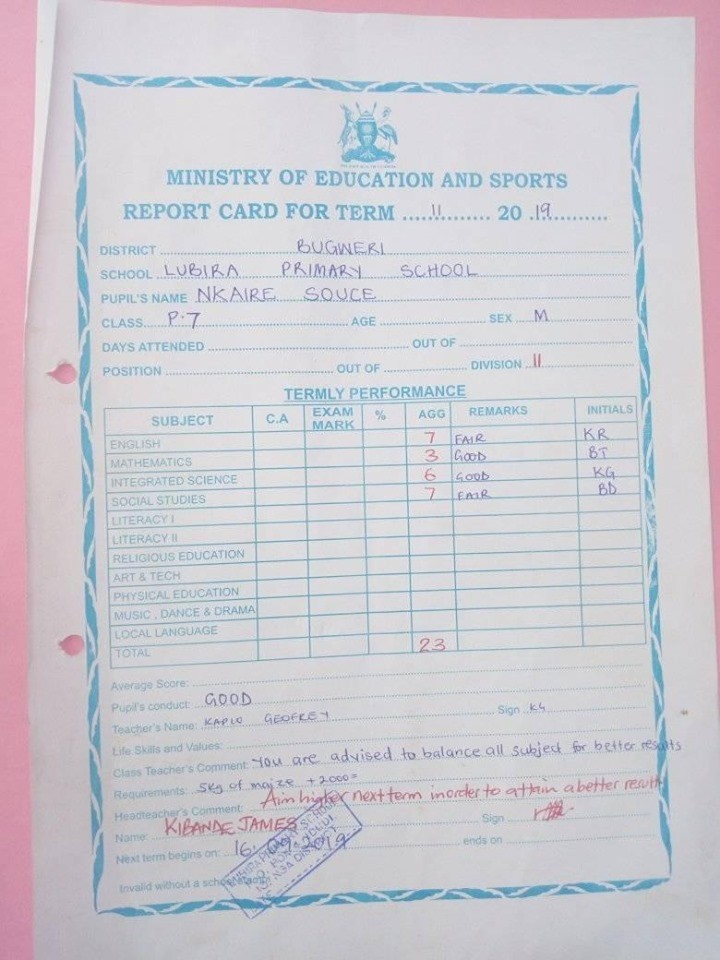 MINISTRY OF EDUCATION AND SPORTS
REPORT CARD FOR TERM ....11............. 20 .19...........
DISTRICT BUGWERI
SCHOOL LUBIRA PRIMARY SCHOOL
PUPIL'S NAME NKAIRE SOUCE
CLASS P.7 AGE SEX M
DAYS ATTENDED OUT OF
POSITION OUT OF DIVISION 11
TERMLY PERFORMANCE
SUBJECT C.A EXAM MARK % AGG REMARKS INITIALS
ENGLISH 7 FAIR KR
MATHEMATICS 3 GOOD BT
INTEGRATED SCIENCE 6 GOOD KG
SOCIAL STUDIES 7 FAIR BD
LITERACY I
LITERACY II
RELIGIOUS EDUCATION
ART & TECH
PHYSICAL EDUCATION
MUSIC , DANCE & DRAMA
LOCAL LANGUAGE
TOTAL 23
Average Score:
Pupil's conduct: GOOD
Teacher's Name: KAPIO GEOFREY Sign KG
Life Skills and Values:
Class Teacher's Comment: You are advised to balance all subject for better results
Requirements: 5kg of maize +2000=
Headteacher's Comment: Aim higher next term inorder to attain a better result
Name: KIBANDE JAMES Sign
Next term begins on: 16. 2019 ends on
Invalid without a school